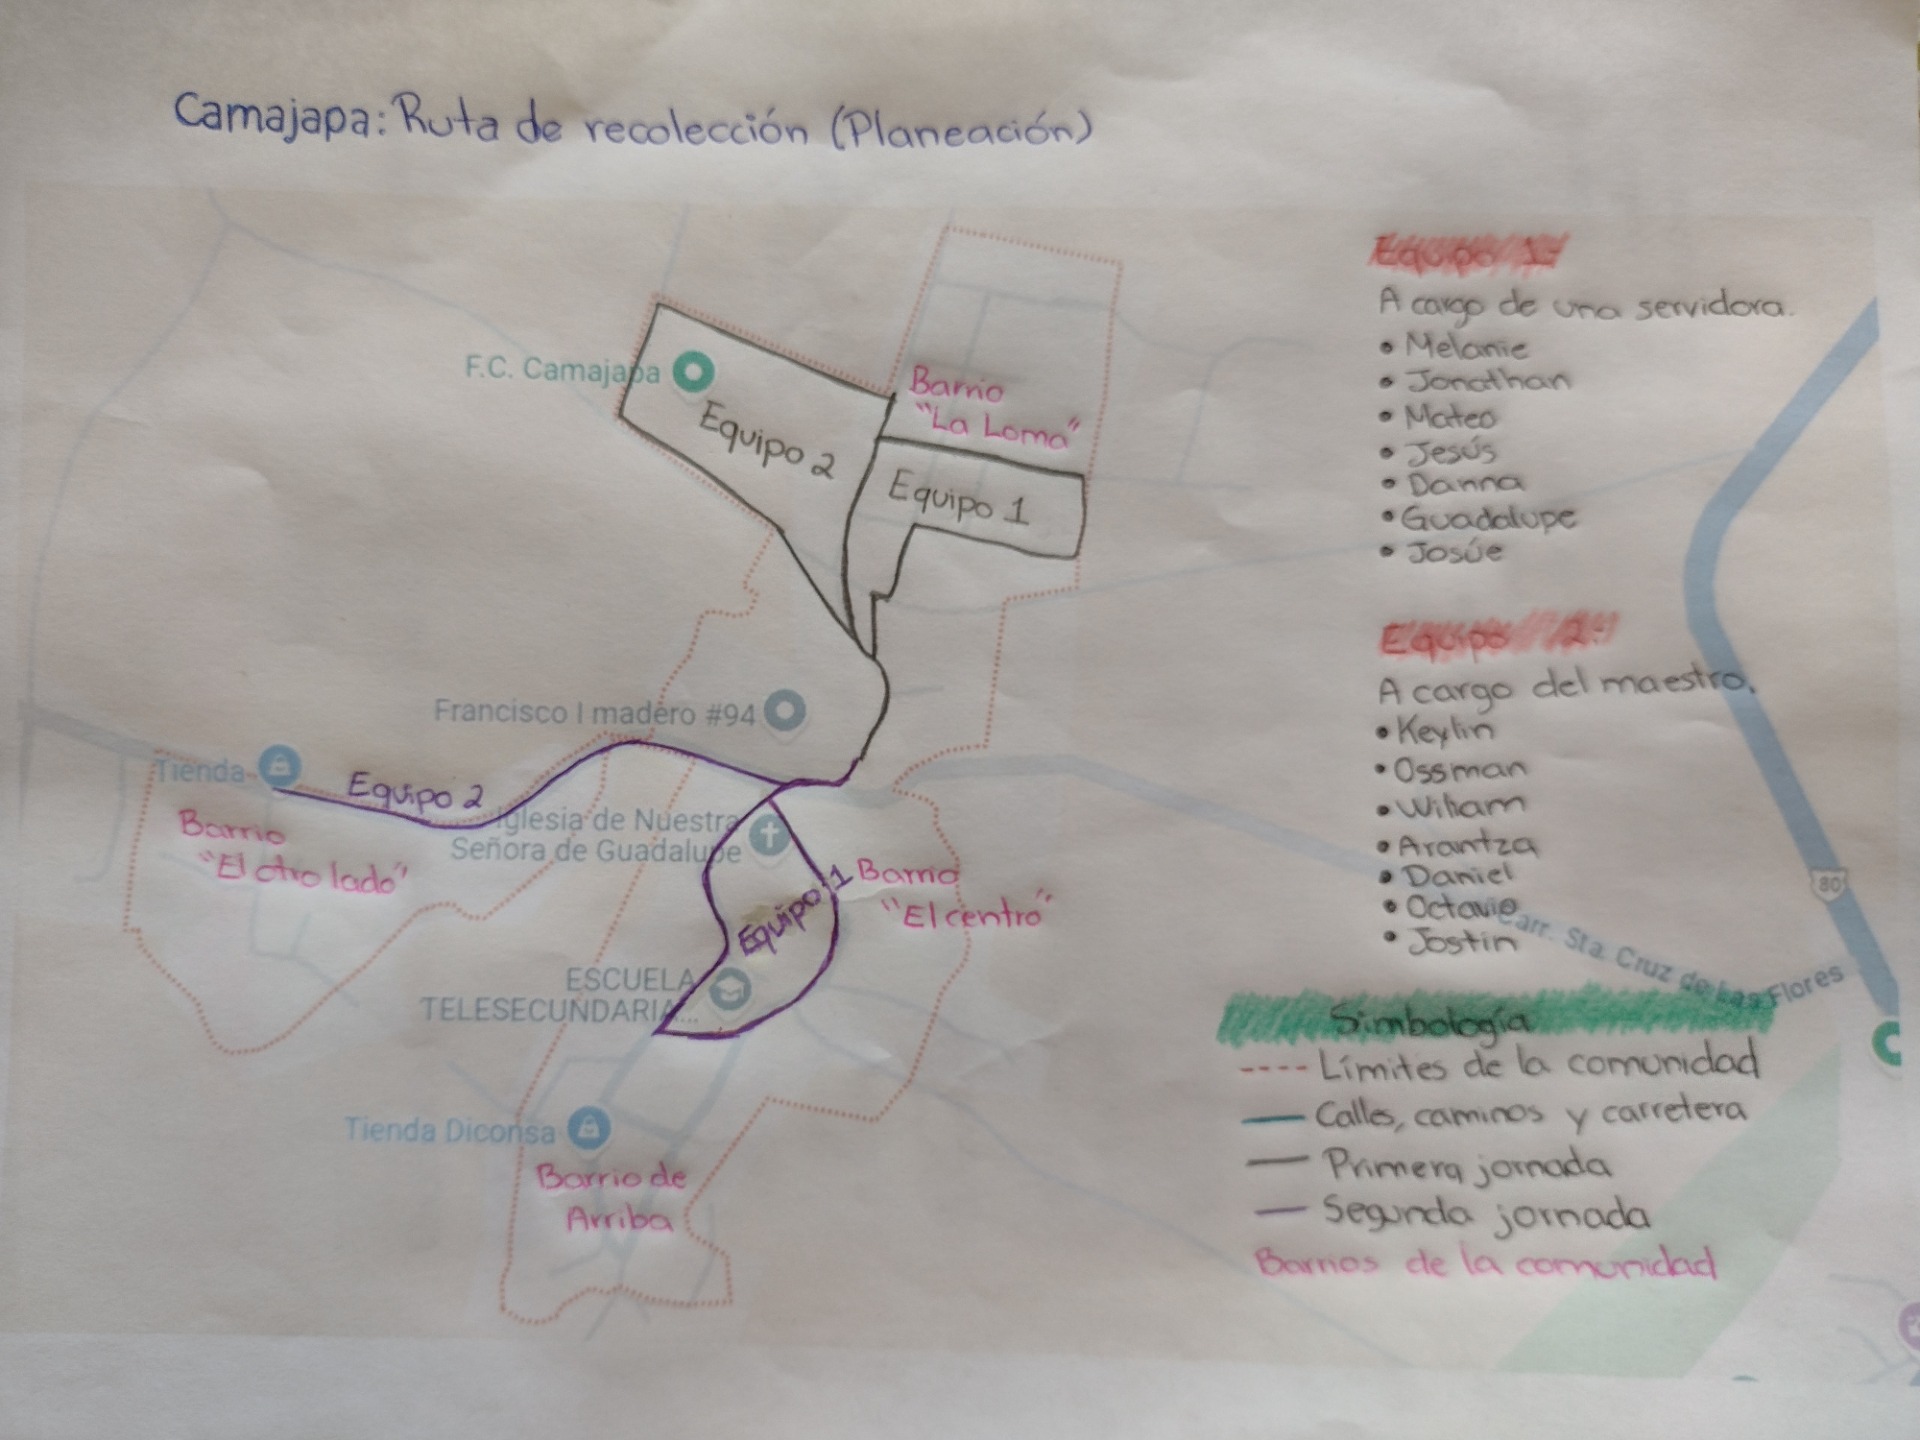 Camajapa: Ruta de recolección (Planeación)
F.C. Camajapa
Equipo 2
Barrio
"La Loma"
Equipo 1
Francisco I madero #94
Tienda
Equipo 2
Barrio
"El otro lado"
Iglesia de Nuestra
Señora de Guadalupe
Equipo 1
Barrio
"El centro"
ESCUELA
TELESECUNDARIA...
Tienda Diconsa
Barrio de
Arriba
Equipo 1:
A cargo de una servidora.
• Melanie
• Jonathan
• Mateo
• Jesús
• Danna
• Guadalupe
• Josúe
Equipo 2:
A cargo del maestro.
• Keylin
• Ossman
• Wiliam
• Arantza
• Daniel
• Octavio
• Jostin
80
Carr. Sta. Cruz de Las Flores
Simbología
Límites de la comunidad
Calles, caminos y carretera
Primera jornada
Segunda jornada
Barrios de la comunidad